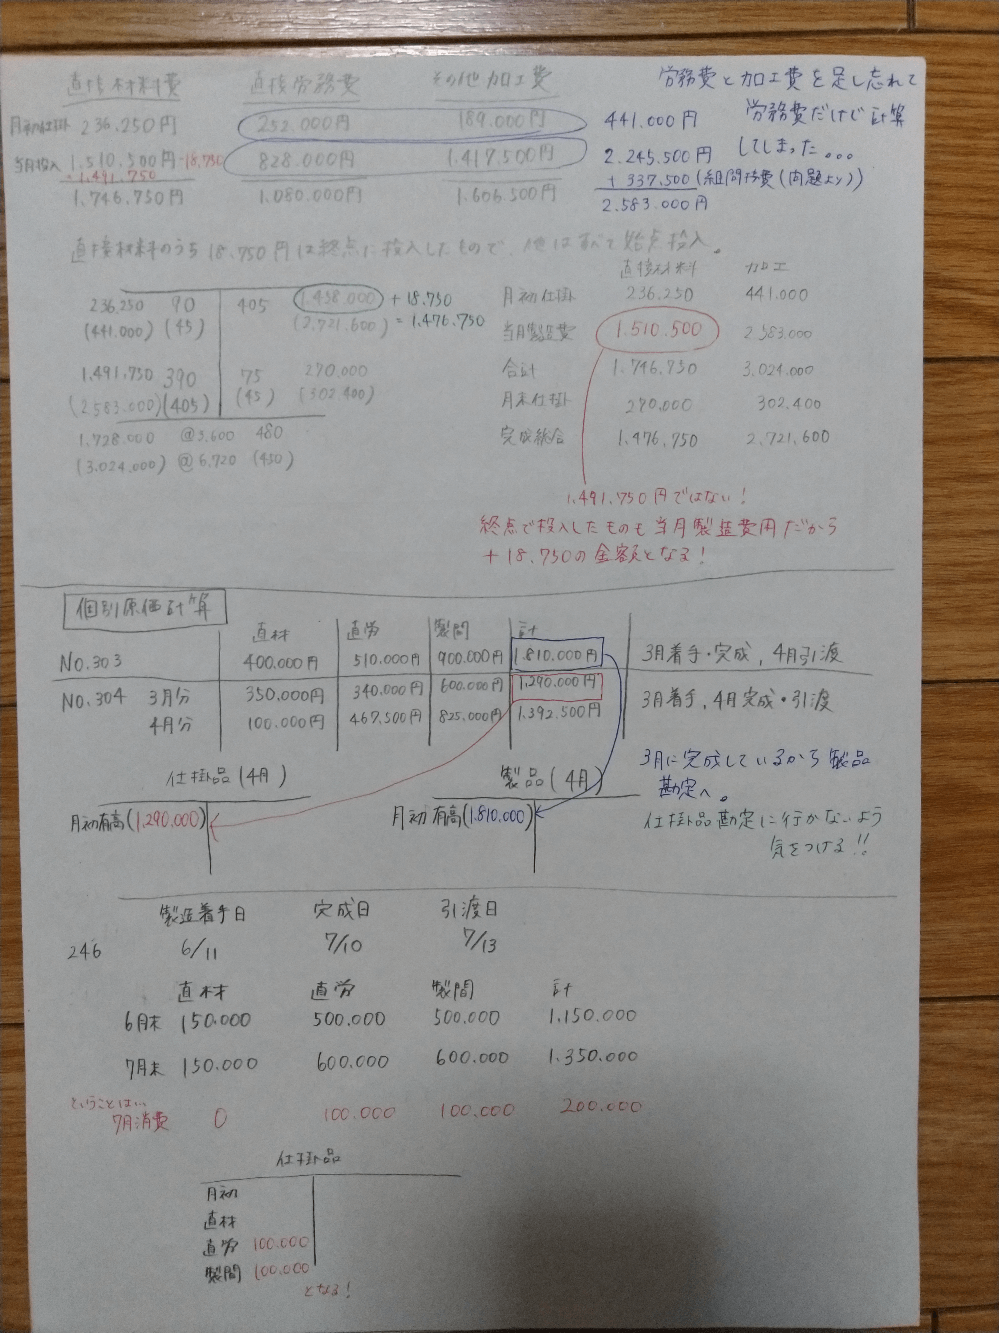 直接材料費 直接労務費 その他加工費
労務費と加工費を足し忘れて
労務費だけで計算
してしまった。。。
月初仕掛 236.250円 252.000円 189.000円 441.000円
当月投入 1.510.500円-18.750 828.000円 1.417.500円 2.245.500円
=1.491.750
+337.500(組間接費(問題より))
1.746.750円 1.080.000円 1.606.500円 2.583.000円
直接材料のうち18.750円は終点に投入したもので、他はすべて始点投入。
236.250 90 405 1.458.000 + 18.750
(441.000) (45) (2.721.600) =1.476.750
1.491.750 390 75 270.000
(2.583.000) (405) (45) (302.400)
1.728.000 @3.600 480
(3.024.000) @6.720 (450)
直接材料 加工
月初仕掛 236.250 441.000
当月製造費 1.510.500 2.583.000
合計 1.746.750 3.024.000
月末仕掛 270.000 302.400
完成総合 1.476.750 2,721,600
1.491.750円ではない!
終点で投入したものも当月製造費用だから
+18.750の金額となる!
個別原価計算
直材 直労 製間 計
No.303 400.000円 510.000円 900.000円 1.810.000円 3月着手・完成, 4月引渡
No.304 3月分 350.000円 340.000円 600.000円 1.290.000円 3月着手, 4月完成・引渡
4月分 100.000円 467.500円 825.000円 1.392.500円
仕掛品(4月)
月初有高(1.290.000)
製品(4月)
月初有高(1.810.000)
3月に完成しているから製品
勘定へ。
仕掛品勘定に行かないよう
気をつける!!
製造着手日 完成日 引渡日
246 6/11 7/10 7/13
直材 直労 製間 計
6月末 150.000 500.000 500.000 1.150.000
7月末 150.000 600.000 600.000 1.350.000
ということは…
7月消費 0 100.000 100.000 200.000
仕掛品
月初
直材
直労 100.000
製間 100.000
となる!